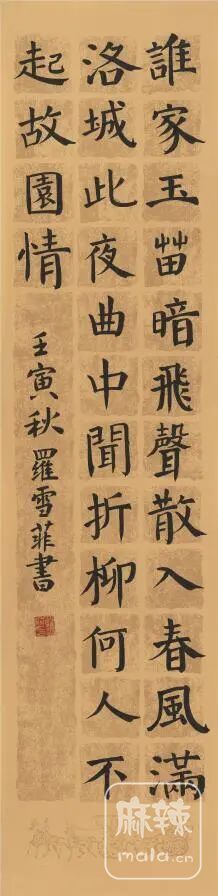 誰家玉笛暗飛聲散入春風滿
洛城此夜曲中聞折柳何人不
起故園情
壬寅秋羅雪菲書
麻辣
mala.cn